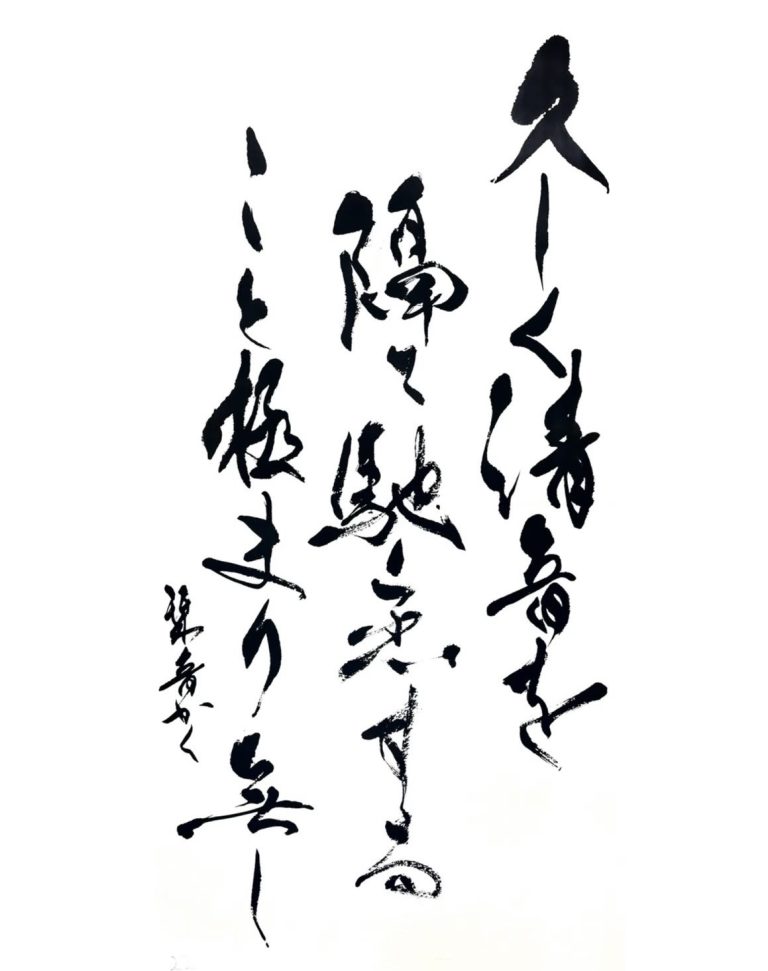 久しく清音を
隔て馳恋する
こと極まり無し
かく